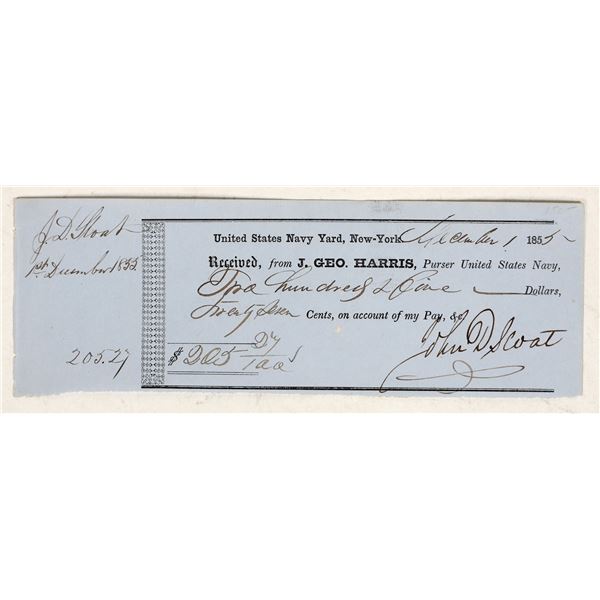 J. D. Sloat
1st December 1855
205.27
United States Navy Yard, New-York December 1 1855
Received, from J. GEO. HARRIS, Purser United States Navy,
Two hundred & Five Dollars,
Twenty Seven Cents, on account of my Pay, &c
$205 27/100
John D Sloat